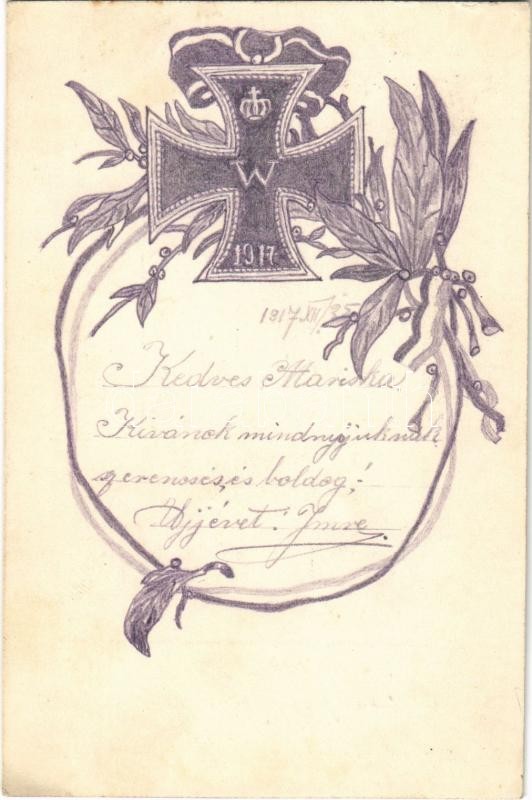 W
1917
1917 XII/25
Kedves Mariska
Kivánok mindnyájuknak
szerencsés, és boldog!
Ujjévet! Imre.